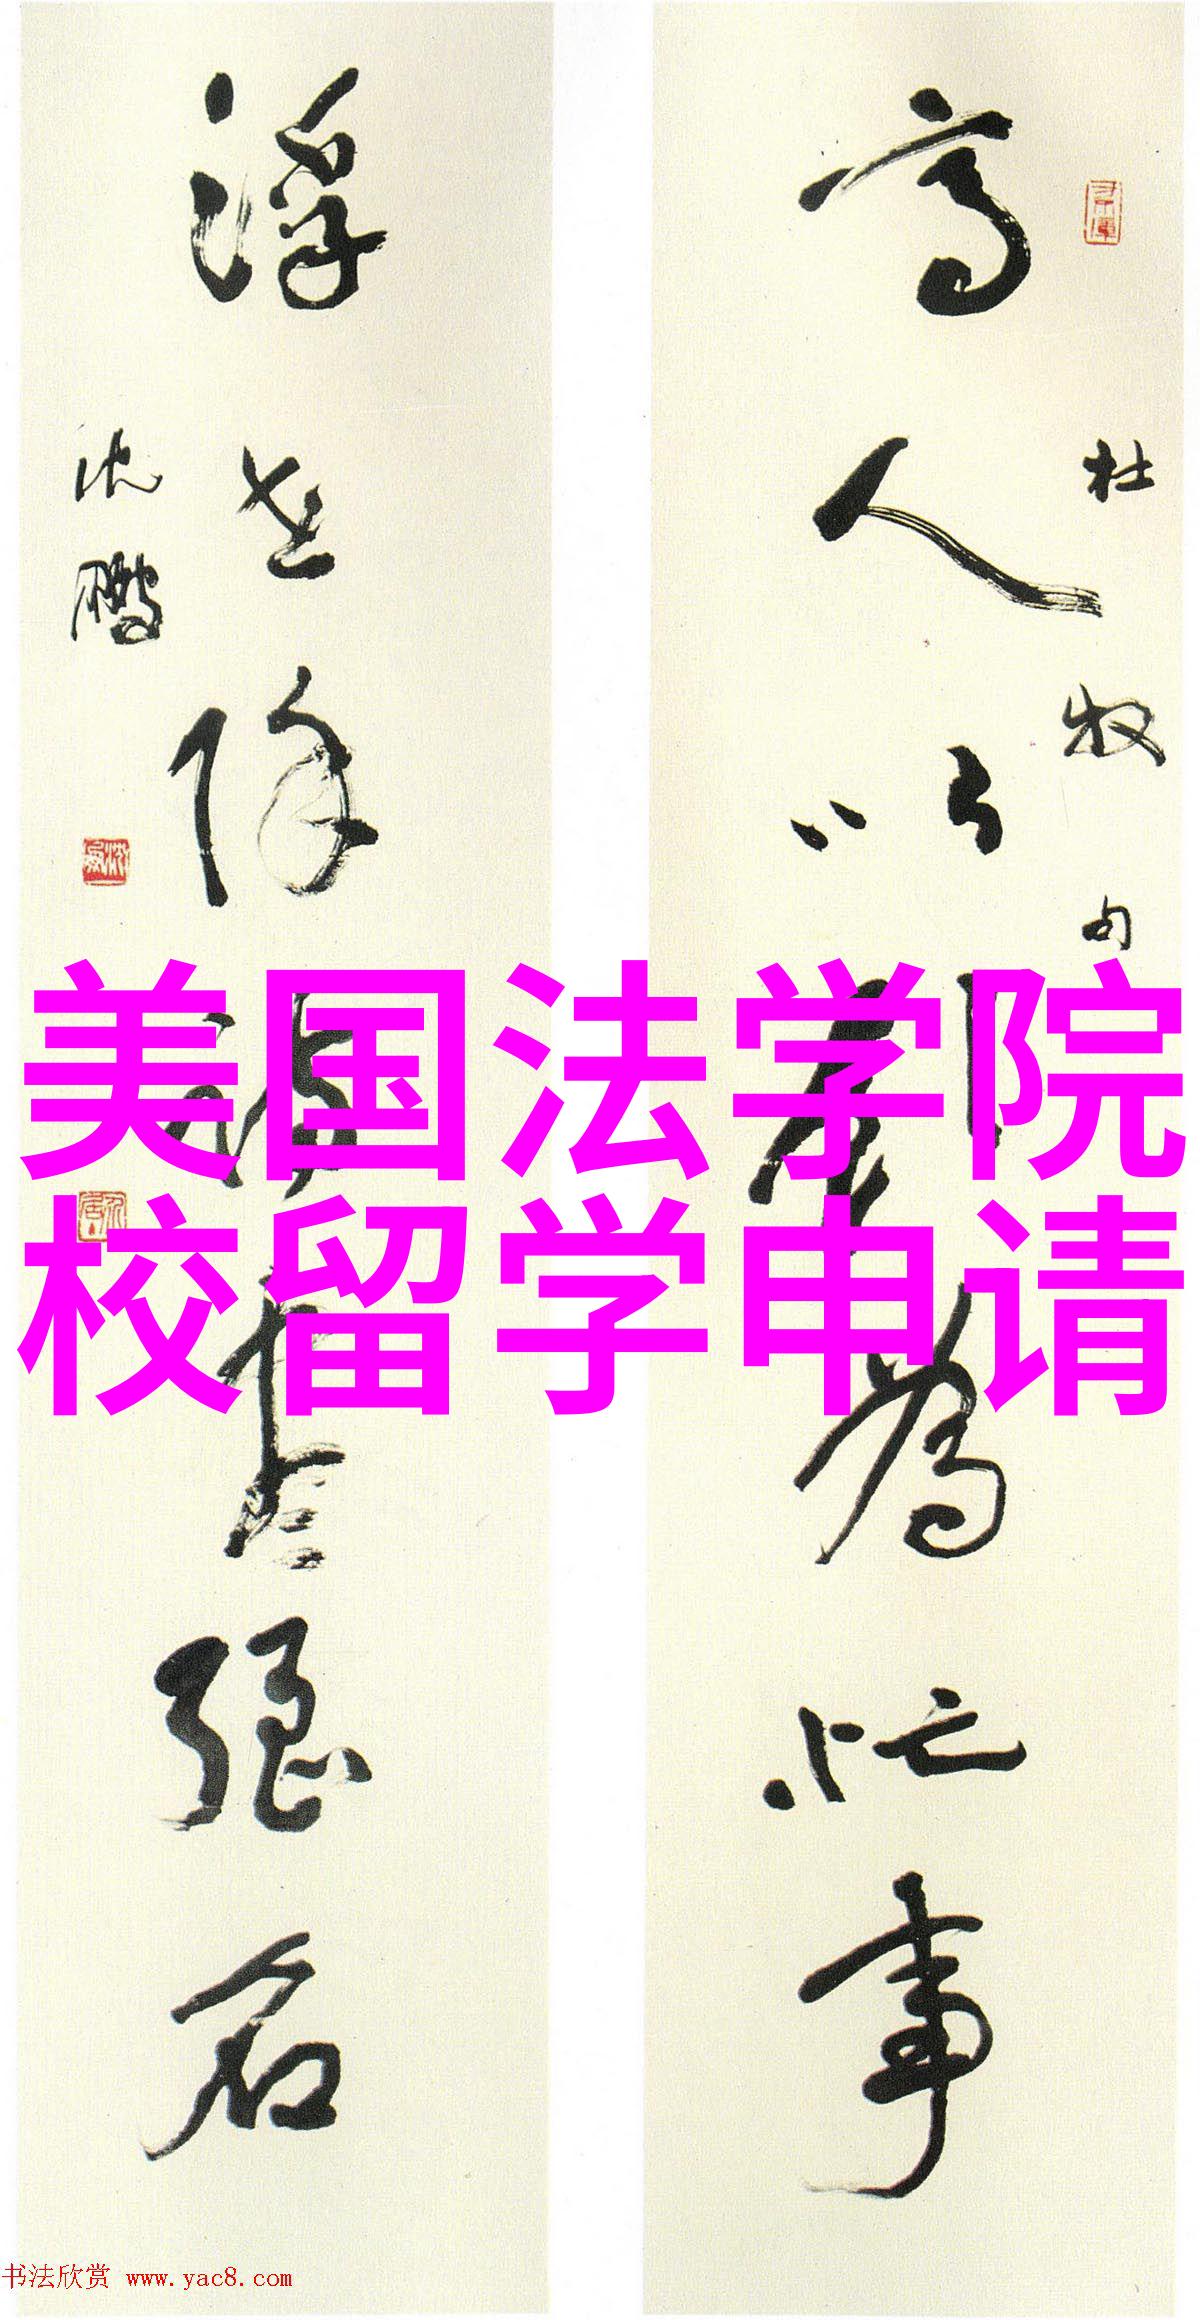 杜牧句
高人以為忙事
浮世除强名
沈鹏
美国法学院
校留学申请
书法欣赏 www.yac8.com